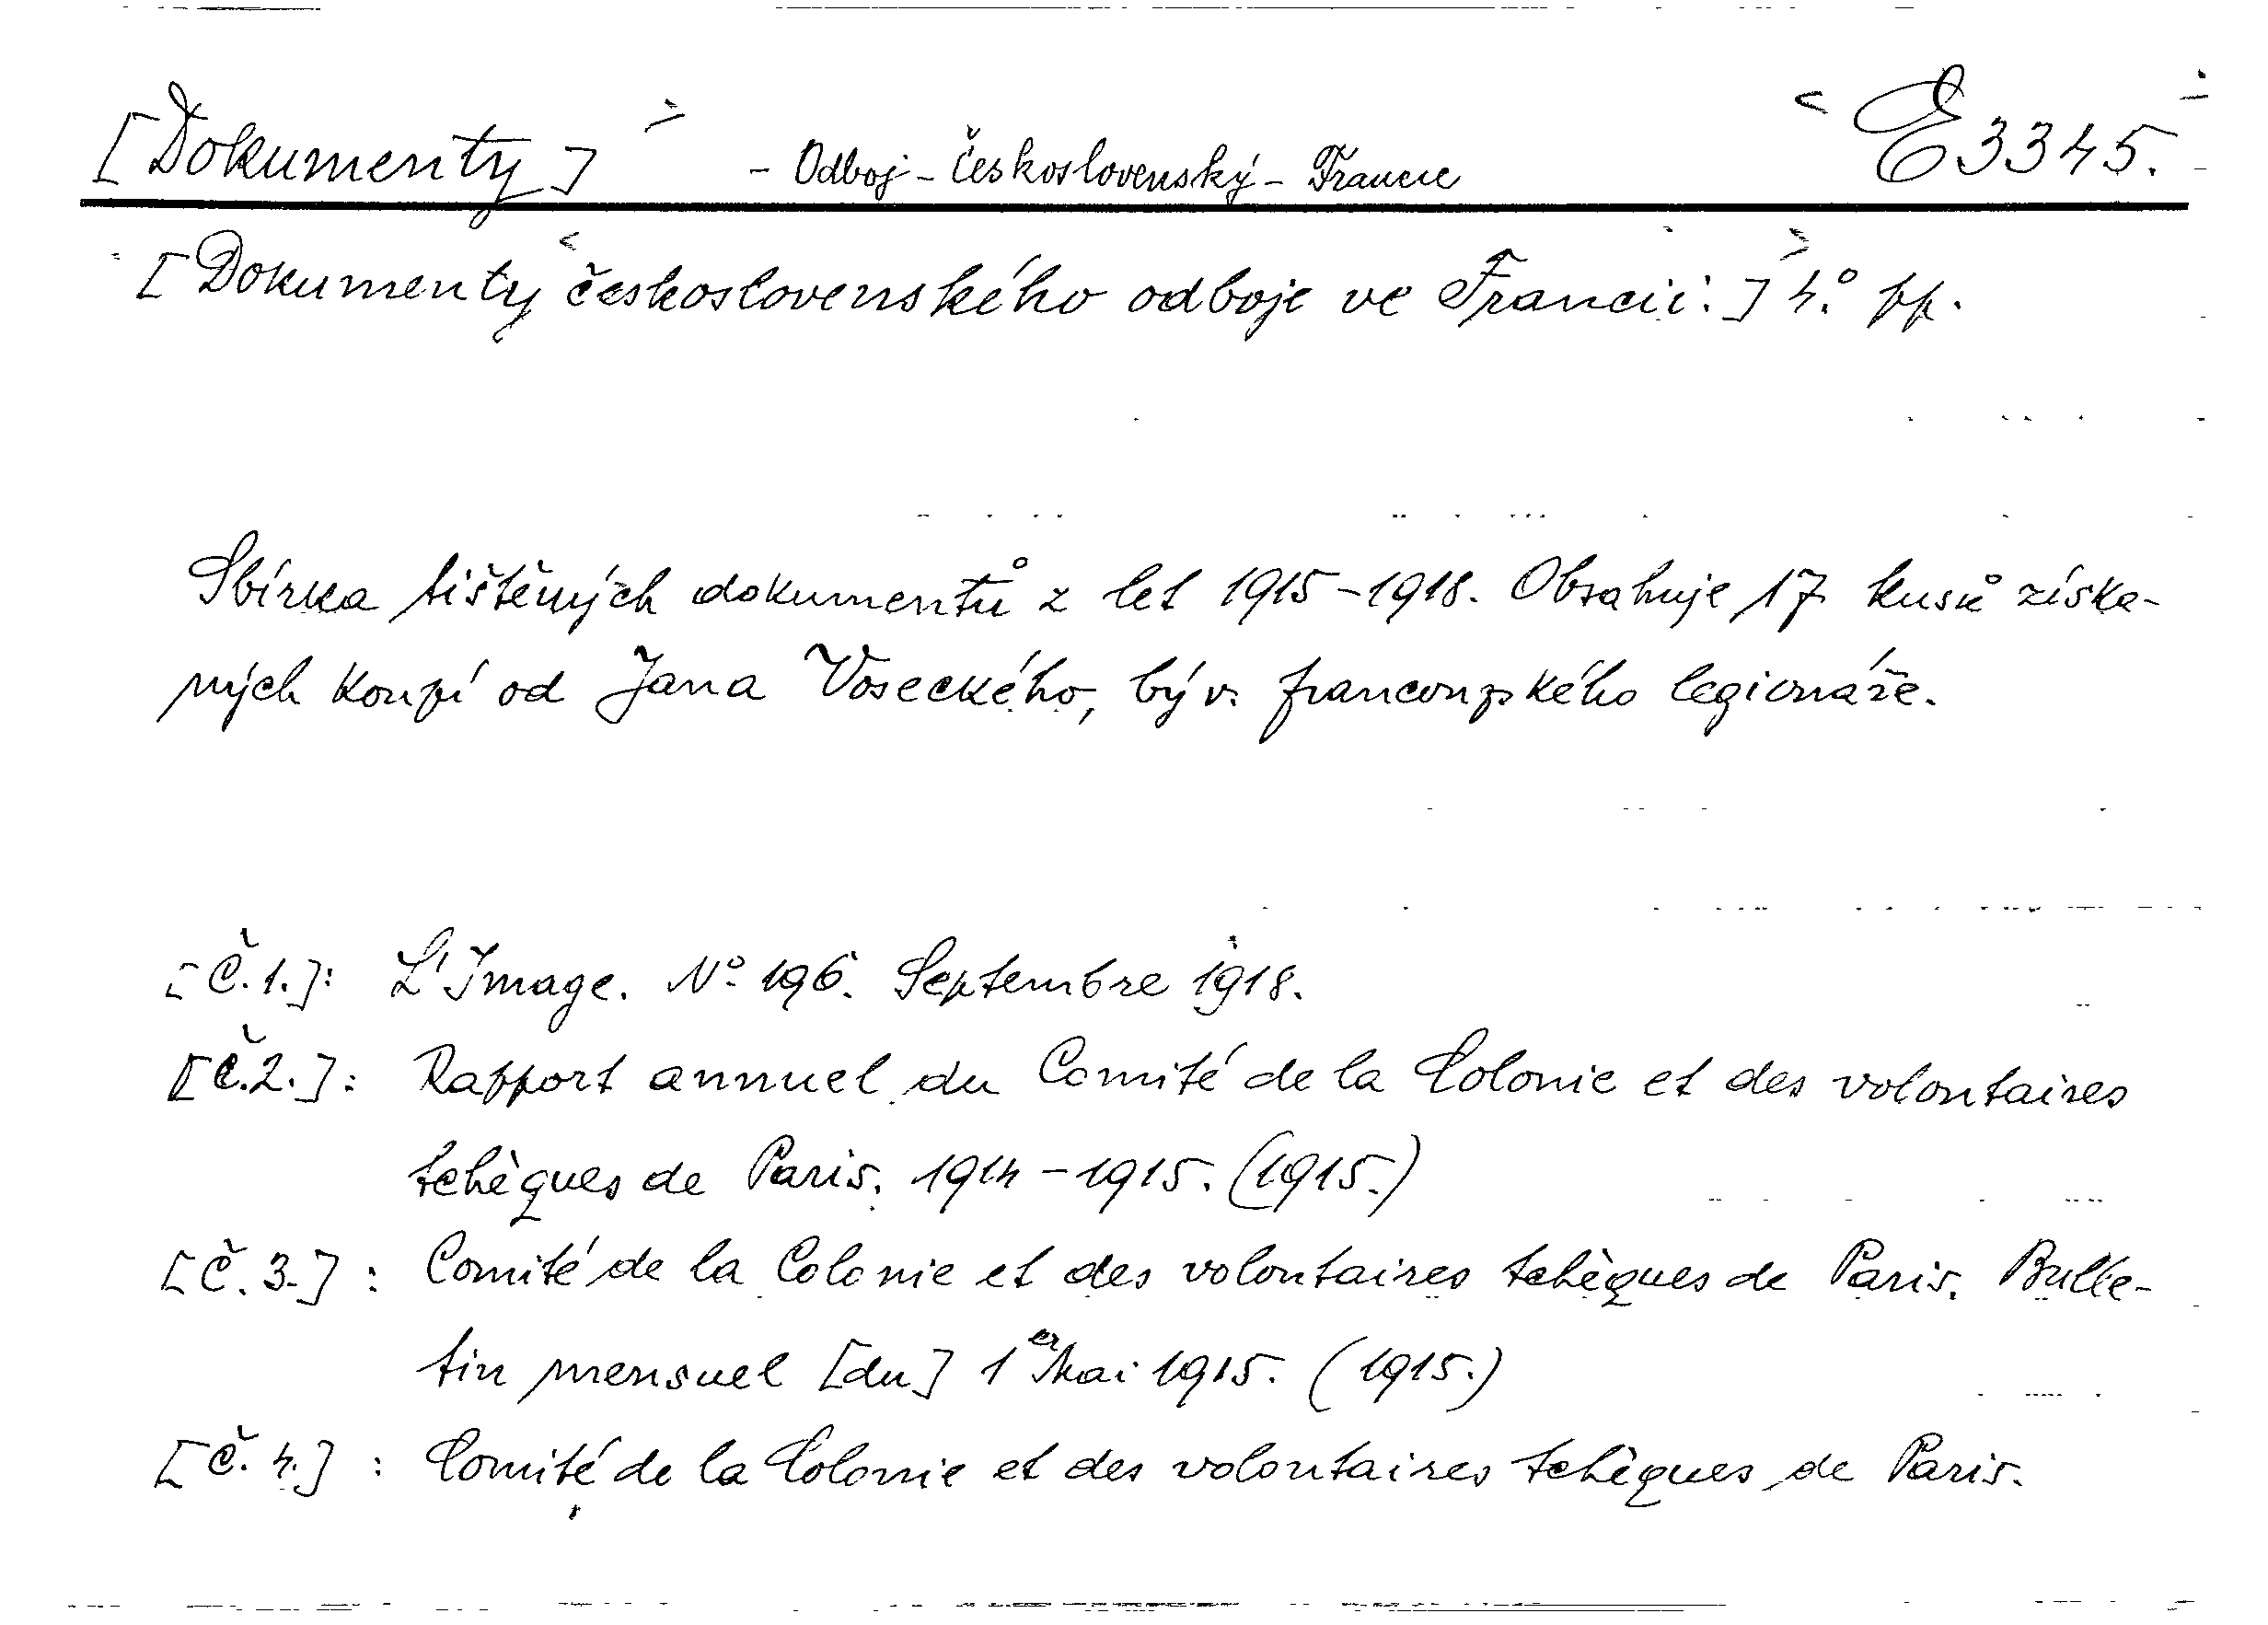 [Dokumenty] - Odboj - Československý - Francie E 3345.
[Dokumenty československého odboje ve Francii:] 4.° pp.
Sbírka tištěných dokumentů z let 1915-1918. Obsahuje 17 kusů získa-
ných koupí od Jana Voseckého, býv. francouzského legionáře.
[Č.1.]: L'Image. N° 196. Septembre 1918.
[Č.2.]: Rapport annuel du Comité de la Colonie et des volontaires
tchèques de Paris. 1914-1915. (1915.)
[Č.3.]: Comité de la Colonie et des volontaires tchèques de Paris. Bulle-
tin mensuel [du] 1er Mai 1915. (1915.)
[Č.4.]: Comité de la Colonie et des volontaires tchèques de Paris.